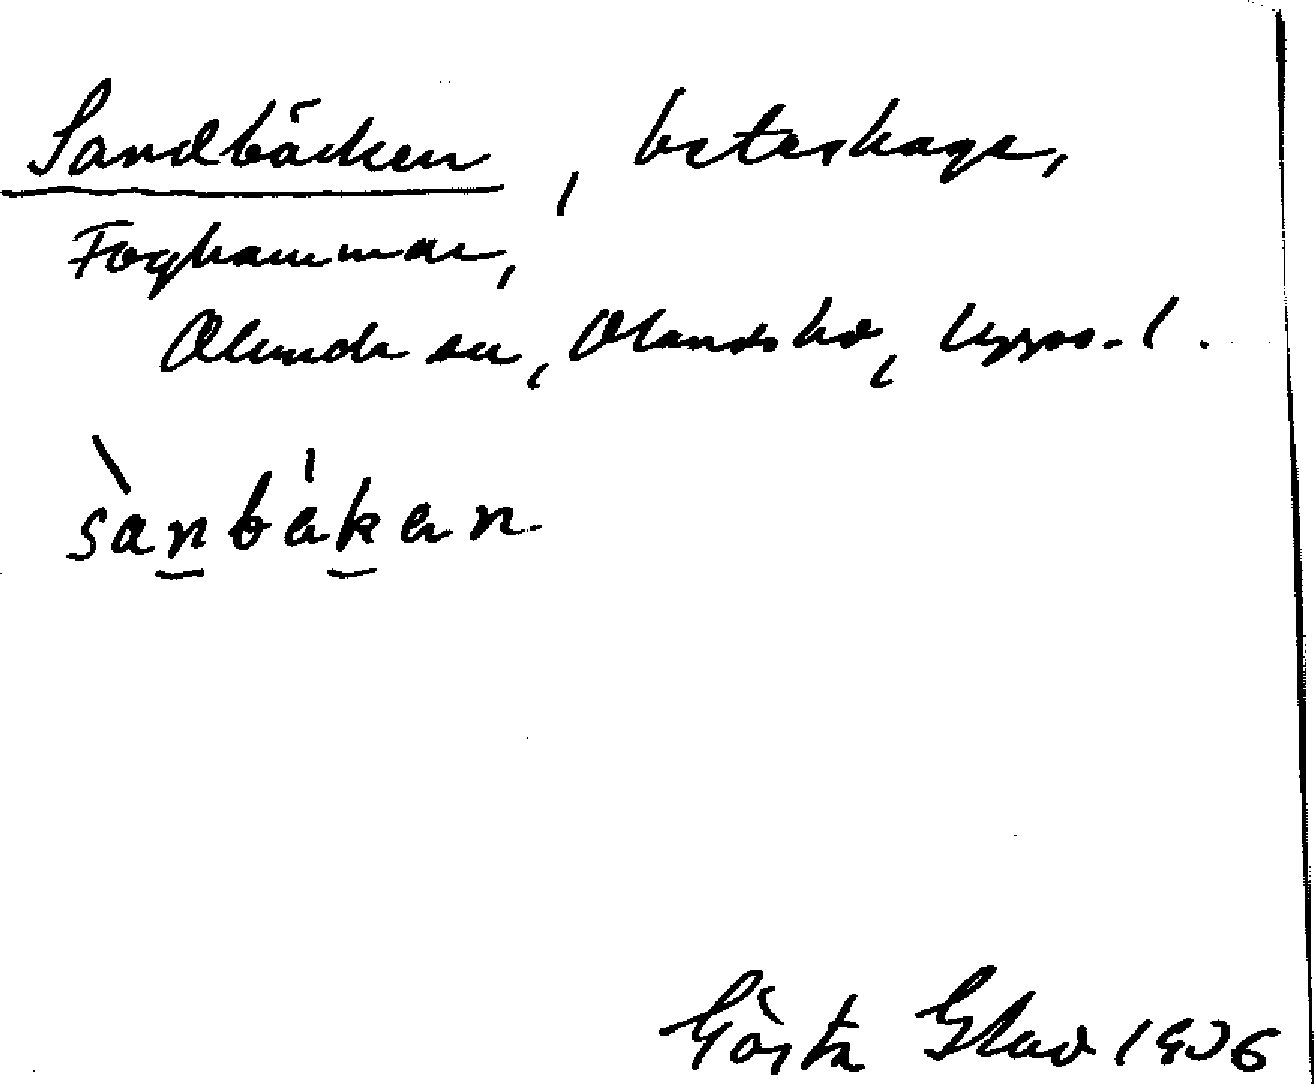 Sandbäcken, beteshage,
Foghammar,
Alunda sn, Olands hd, Upps. l.
sanbäkan
Gösta Glad 1936